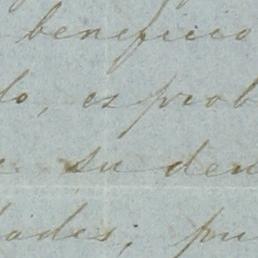 beneficio
do, es prob
su den
dades, pu